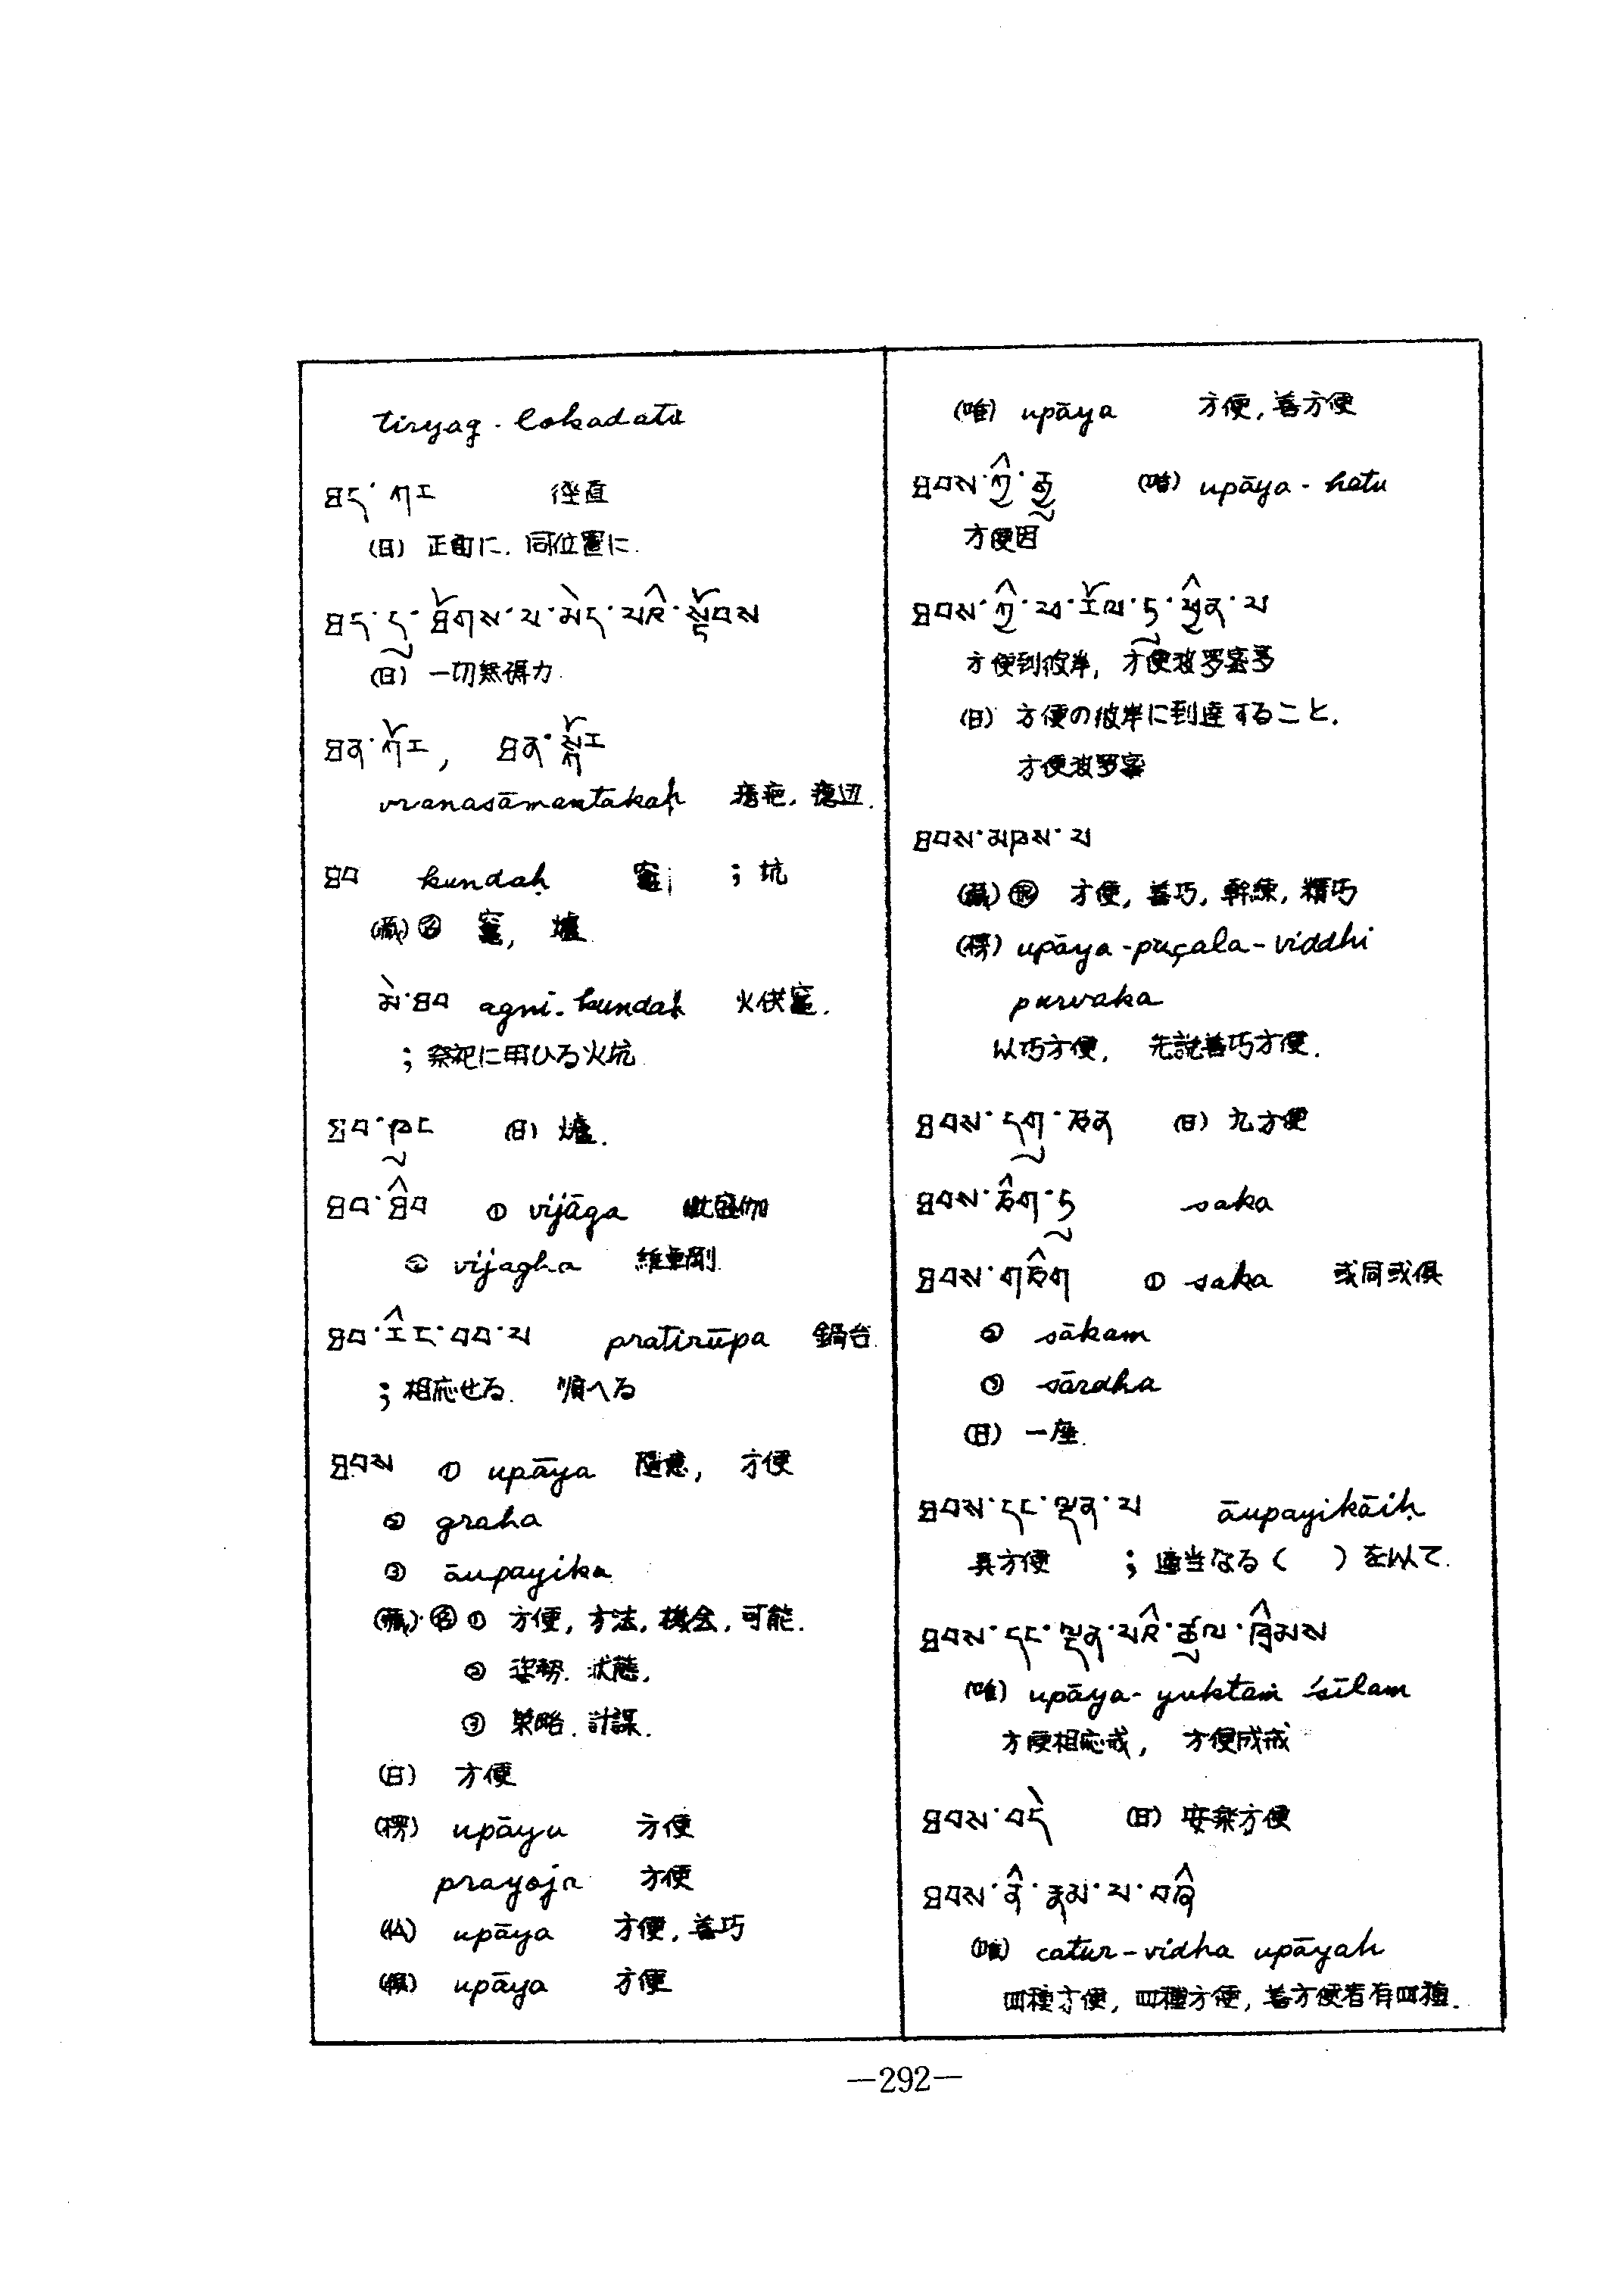 tiryag-lokadatū
ཐད་ཀར 徑直
(日) 正面に. 同位置に.
ཐད་དུ་ཐོགས་པ་མེད་པའི་སྟོབས
(日) 一切無得力.
ཐན་ཀོར, ཐན་སྐོར
vranasāmantakaḥ 瘡疤, 瘡辺.
ཐབ kundaḥ 竈 ; 坑
(蔵) 名 竈, 爐
མེ་ཐབ agni-kundaḥ 火供竈.
; 祭祀に用ひる火坑
ཐབ་ཁུང (日) 爐.
ཐབ་ཐིབ ① vijāga
② vijagha
ཐབ་རིང་བབ་པ pratirūpa 鍋台.
; 相応せる. 順へる
ཐབས ① upāya 隨意, 方便
② graha
③ āupayika
(蔵) 名 ① 方便, 方法, 機会, 可能.
② 姿勢. 状態.
③ 策略. 計謀.
(日) 方便
(楞) upāyu 方便
prayoja 方便
(仏) upāya 方便, 善巧
(倶) upāya 方便
(唯) upāya 方便, 善方便
ཐབས་ཀྱི་རྒྱུ (唯) upāya-hetu
方便因
ཐབས་ཀྱི་ཕ་རོལ་ཏུ་ཕྱིན་པ
方便到彼岸, 方便波罗蜜多
(日) 方便の彼岸に到達すること.
方便波罗蜜
ཐབས་མཁས་པ
(蔵) 形 方便, 善巧, 幹練, 精巧
(楞) upāya-puçala-viddhi
purvaka
以巧方便, 先説善巧方便.
ཐབས་དགུ་ཅན (日) 九方便
ཐབས་ཅིག་ཏུ saka
ཐབས་གཅིག ① saka 或同或俱
② sākam
③ sārdha
(日) 一座.
ཐབས་དང་ལྡན་པ āupayikāiḥ
具方便 ; 適当なる( )を以て.
ཐབས་དང་ལྡན་པའི་ཚུལ་ཁྲིམས
(唯) upāya-yuktaṁ śīlam
方便相応戒, 方便成戒
ཐབས་བདེ (日) 安楽方便
ཐབས་ནི་རྣམ་པ་བཞི
(唯) catur-vidha upāyah
四種方便, 四種方便, 善方便者有四種.
—292—